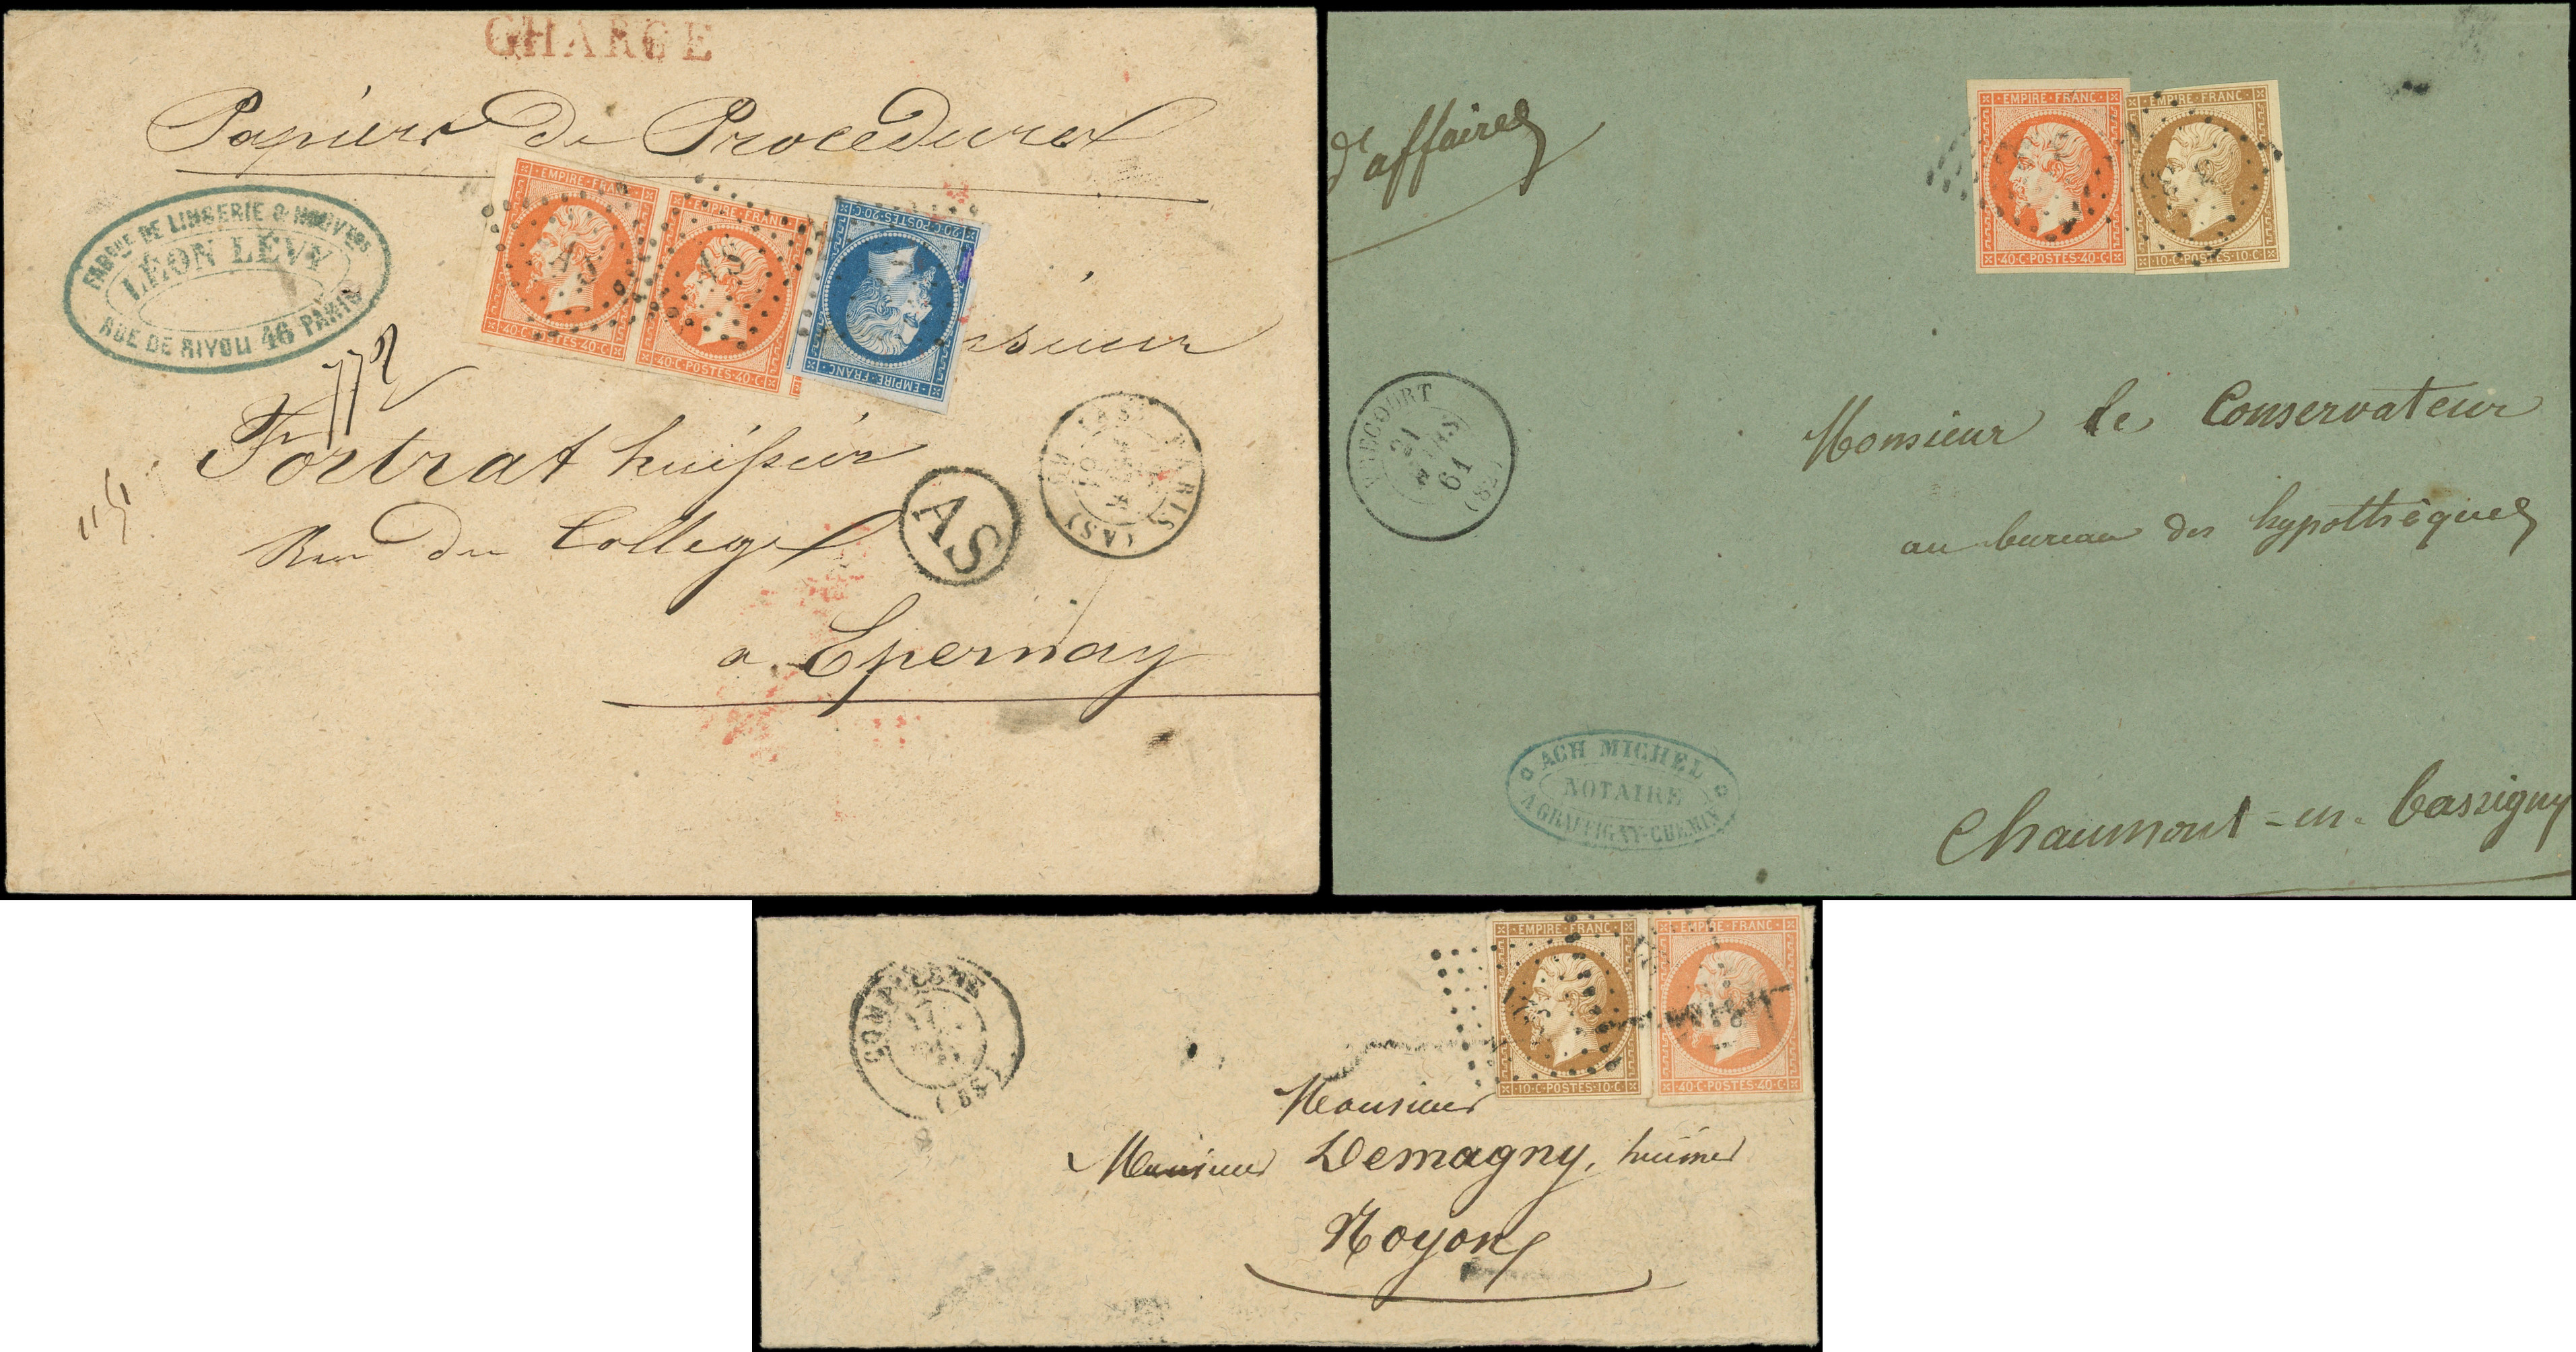 CHARGÉ
Papiers de Procedures
FABQUE DE LINGERIE & NOUVTES
LÉON LÉVY
RUE DE RIVOLI 46 PARIS
EMPIRE · FRANC
40 · C · POSTES · 40 · C
AS
EMPIRE · FRANC
40 · C · POSTES · 40 · C
AS
20 · C · POSTES · 20 · C
EMPIRE · FRANC
Fortrat huissier
Rue du College
AS
PARIS (AS)
60
a Epernay
d'affaires
EMPIRE · FRANC
40 · C · POSTES · 40 · C
EMPIRE · FRANC
10 · C · POSTES · 10 · C
Monsieur le Conservateur
au bureau des hypothèques
Chaumont-en-Bassigny
21
61
ACH MICHEL
NOTAIRE
A GRAFFIGNY-CHEMIN
EMPIRE · FRANC
10 · C · POSTES · 10 · C
EMPIRE · FRANC
40 · C · POSTES · 40 · C
COMPIEGNE
17
Monsieur
Monsieur Demagny, huissier
Noyon